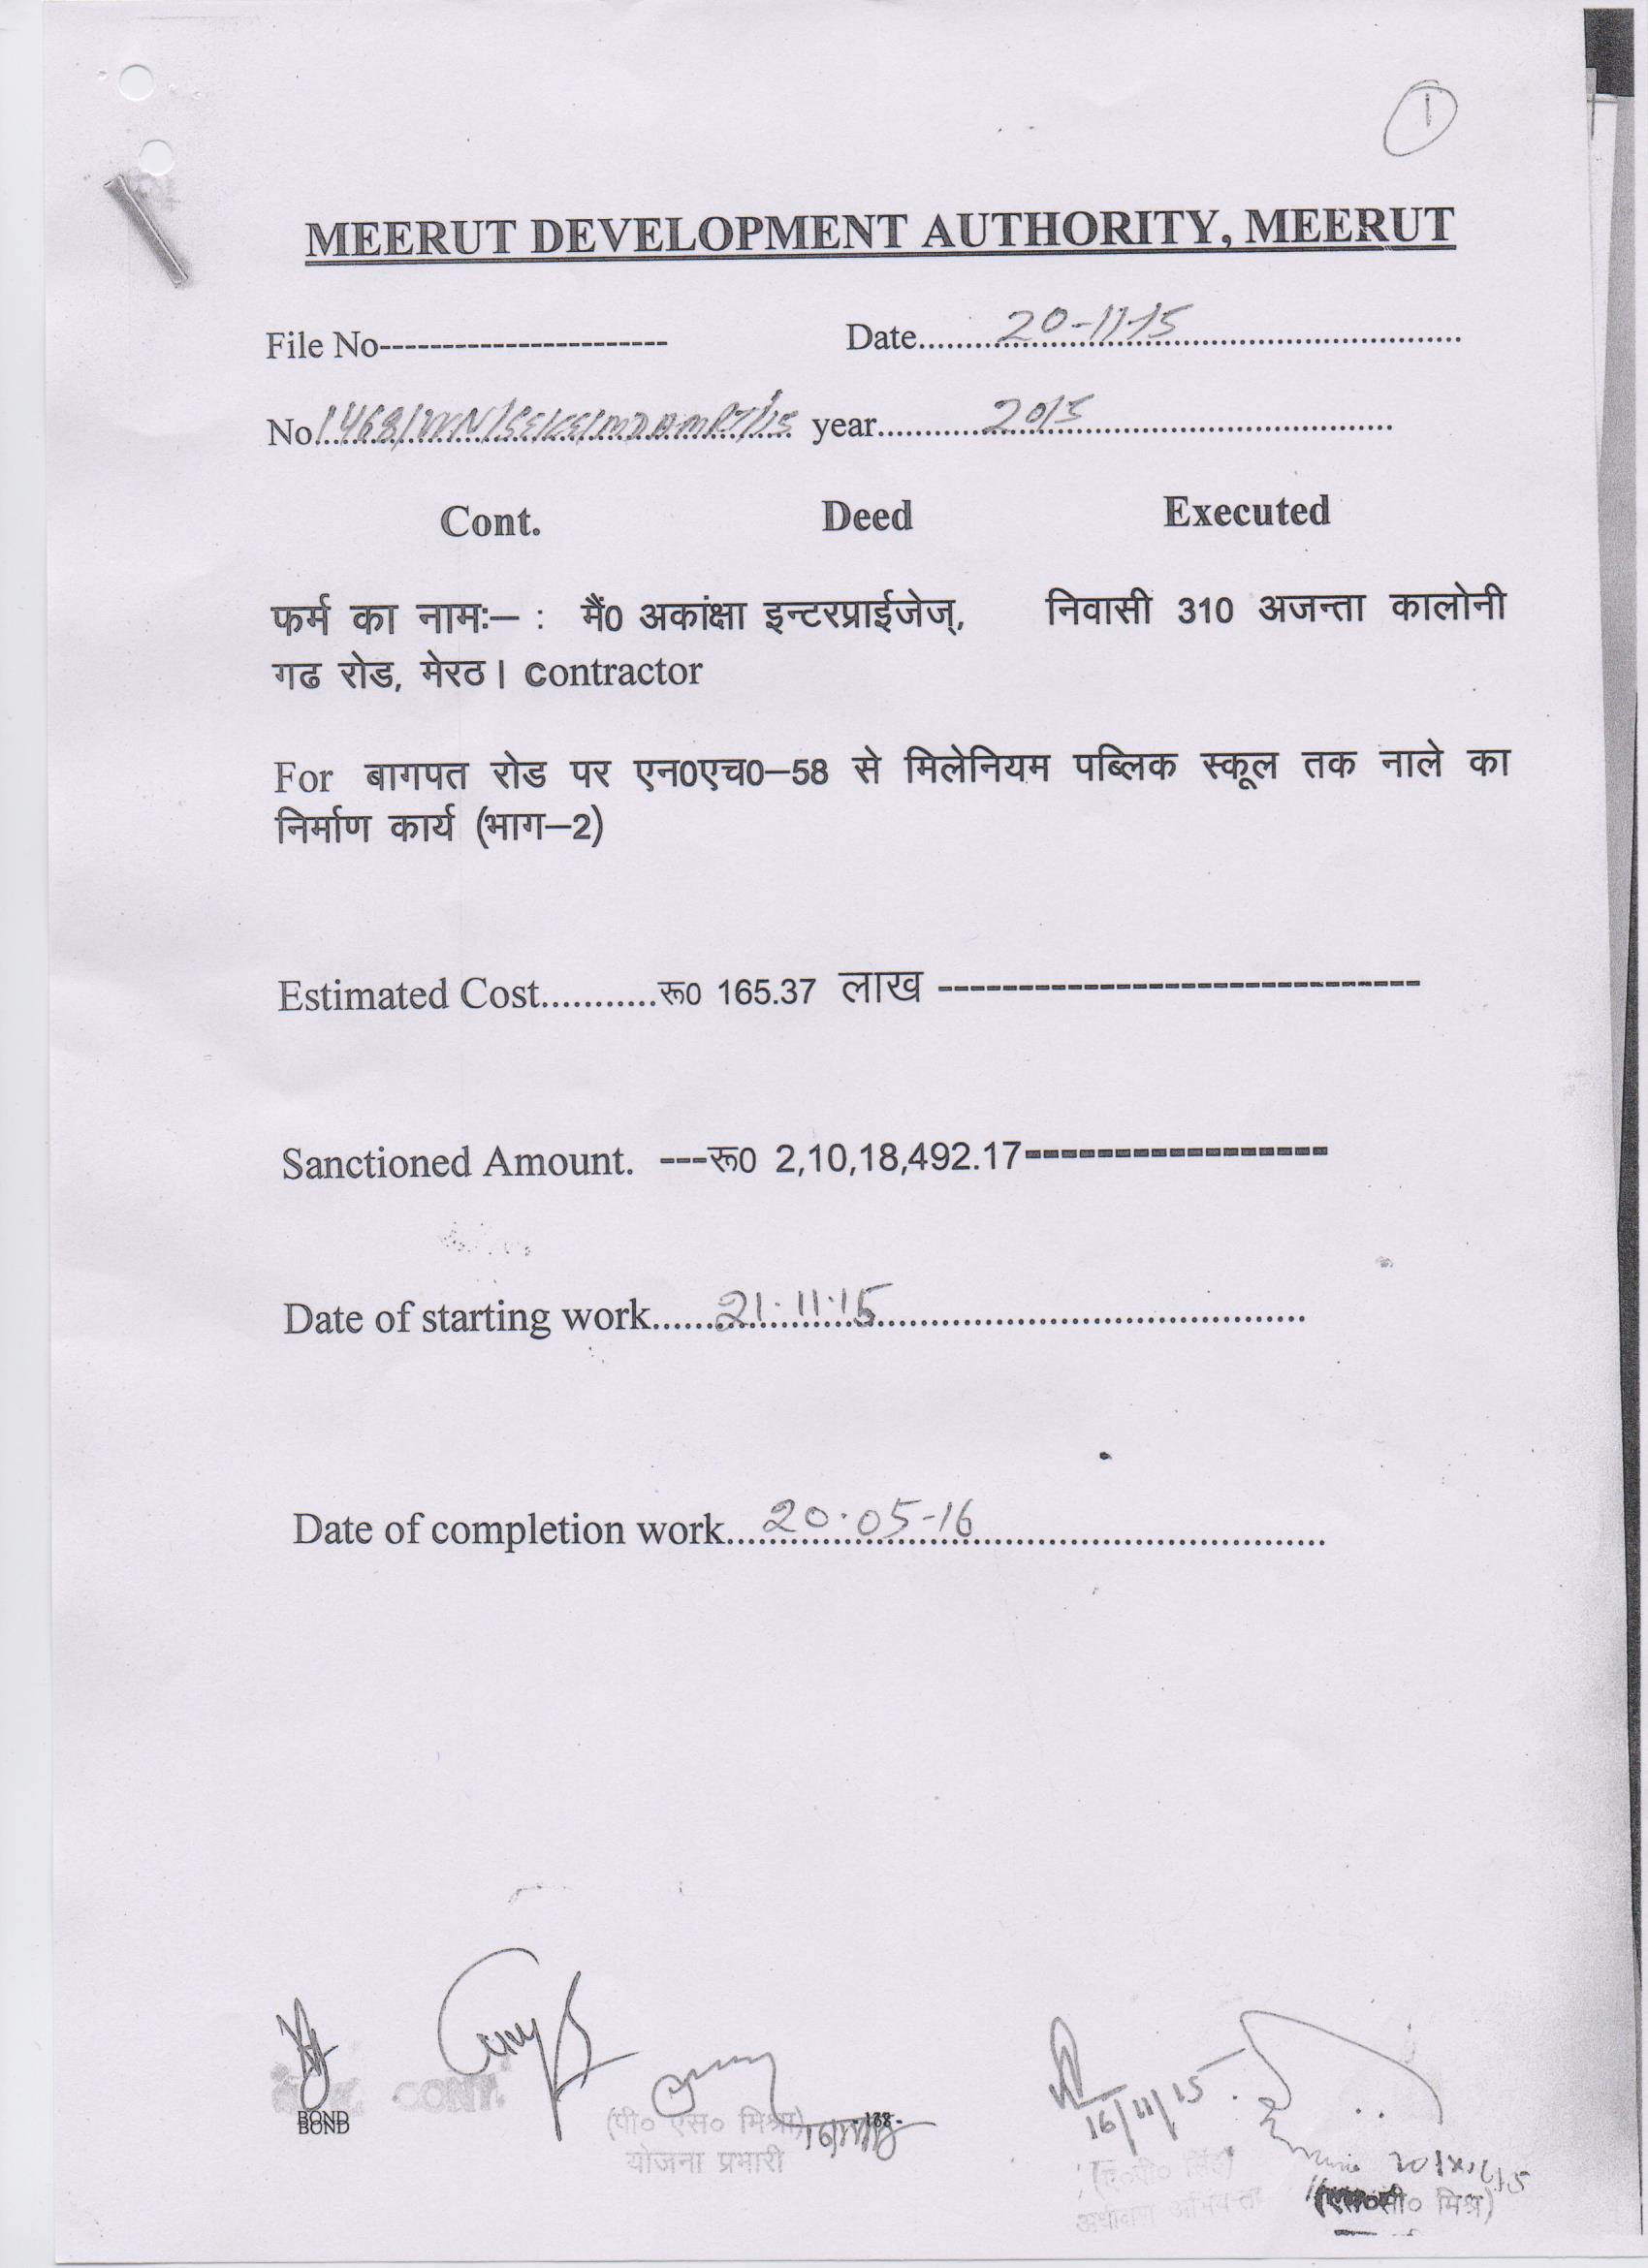 1
MEERUT DEVELOPMENT AUTHORITY, MEERUT
File No----------------------- Date..........20-11-15..........
No 1468/ year..........2015..........
Cont. Deed Executed
फर्म का नामः– : मैं0 अकांक्षा इन्टरप्राईजेज्, निवासी 310 अजन्ता कालोनी
गढ रोड, मेरठ। Contractor
For बागपत रोड पर एन0एच0–58 से मिलेनियम पब्लिक स्कूल तक नाले का
निर्माण कार्य (भाग–2)
Estimated Cost...........रू0 165.37 लाख ------------------------------
Sanctioned Amount. ---रू0 2,10,18,492.17------------------
Date of starting work......21.11.15..........
Date of completion work....20.05-16..........
CONT.
BOND
BOND
(पी० एस० मिश्रा)
योजना प्रभारी
16/11/15
(एस०सी० मिश्र)